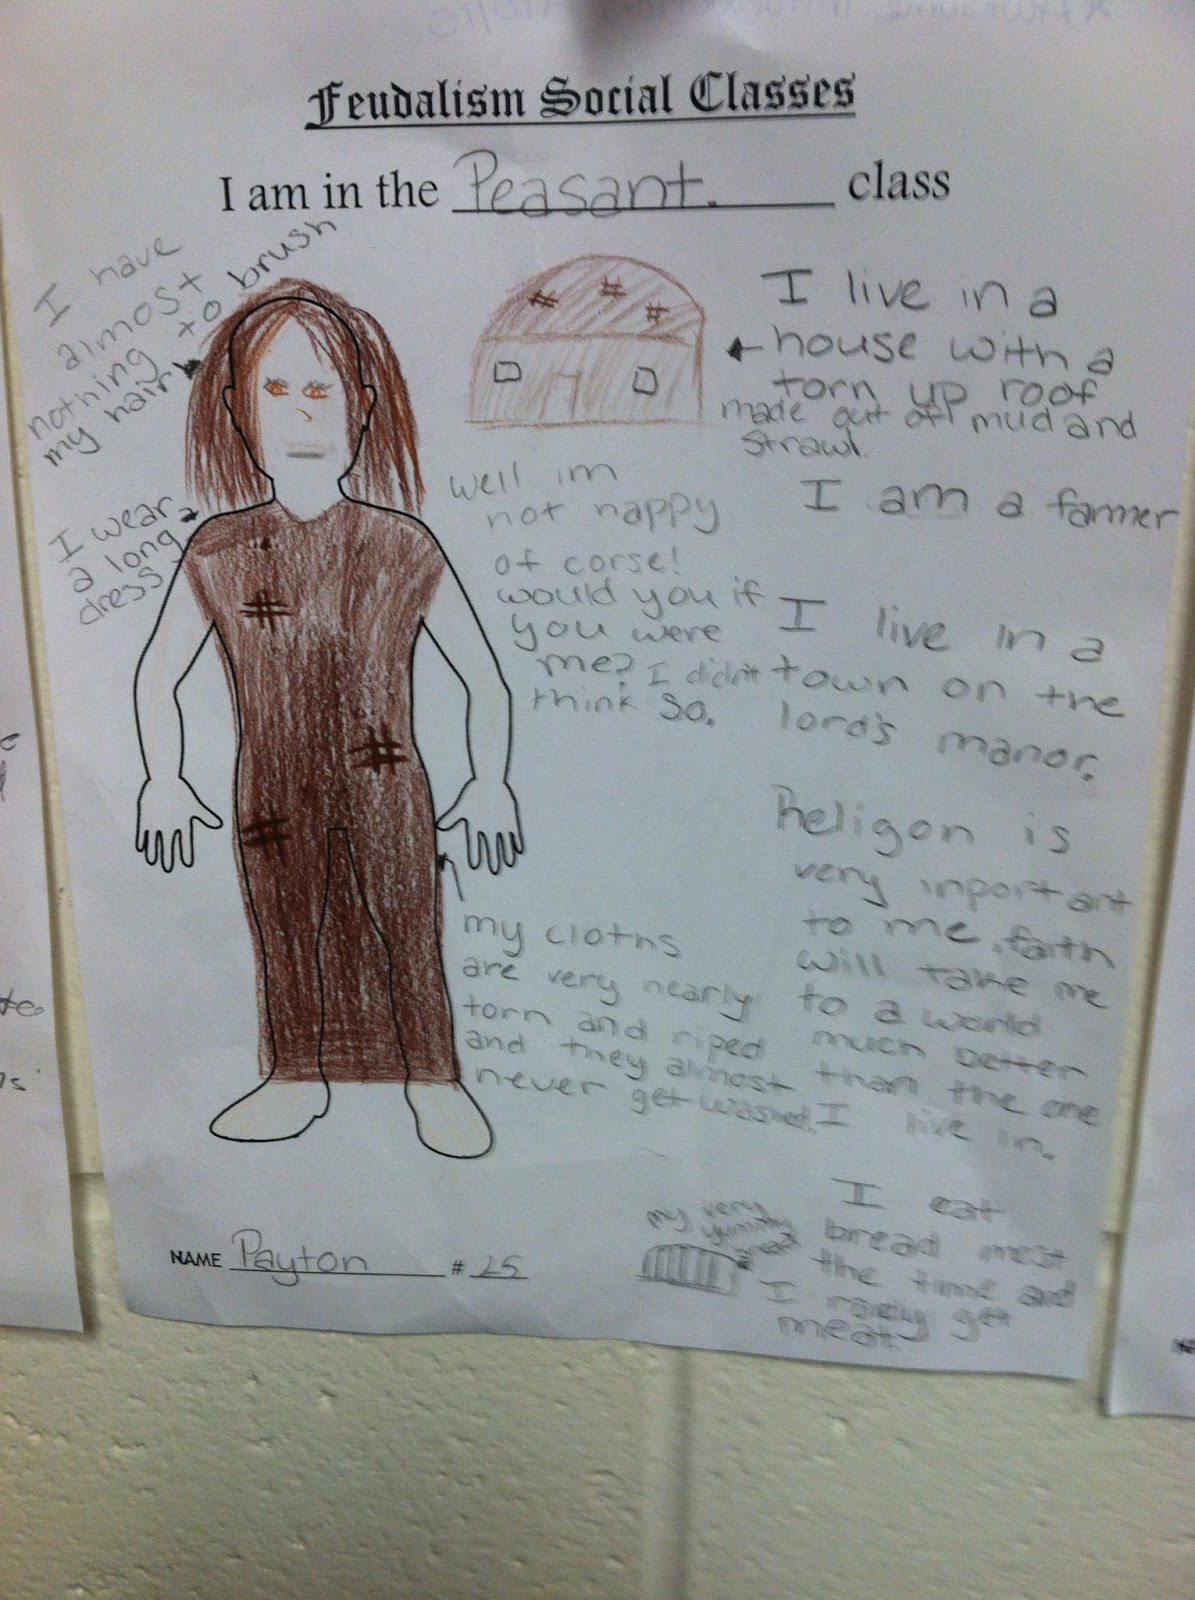 Feudalism Social Classes
I am in the Peasant. class
I have
almost
nothing to brush
my hair
I wear
a long
dress
I live in a
house with a
torn up roof
made out of mud and
strawl.
I am a farmer
well im
not happy
of corse!
would you if
you were
me? I didn't
think so.
I live in a
town on the
lord's manor.
Religon is
very inportant
to me, faith
will take me
to a world
much better
than the one
I live in.
my cloths
are very nearly
torn and riped
and they almost
never get washed.
my very
yummy
I eat
bread most
the time and
I rarely get
meat
NAME Payton # 25